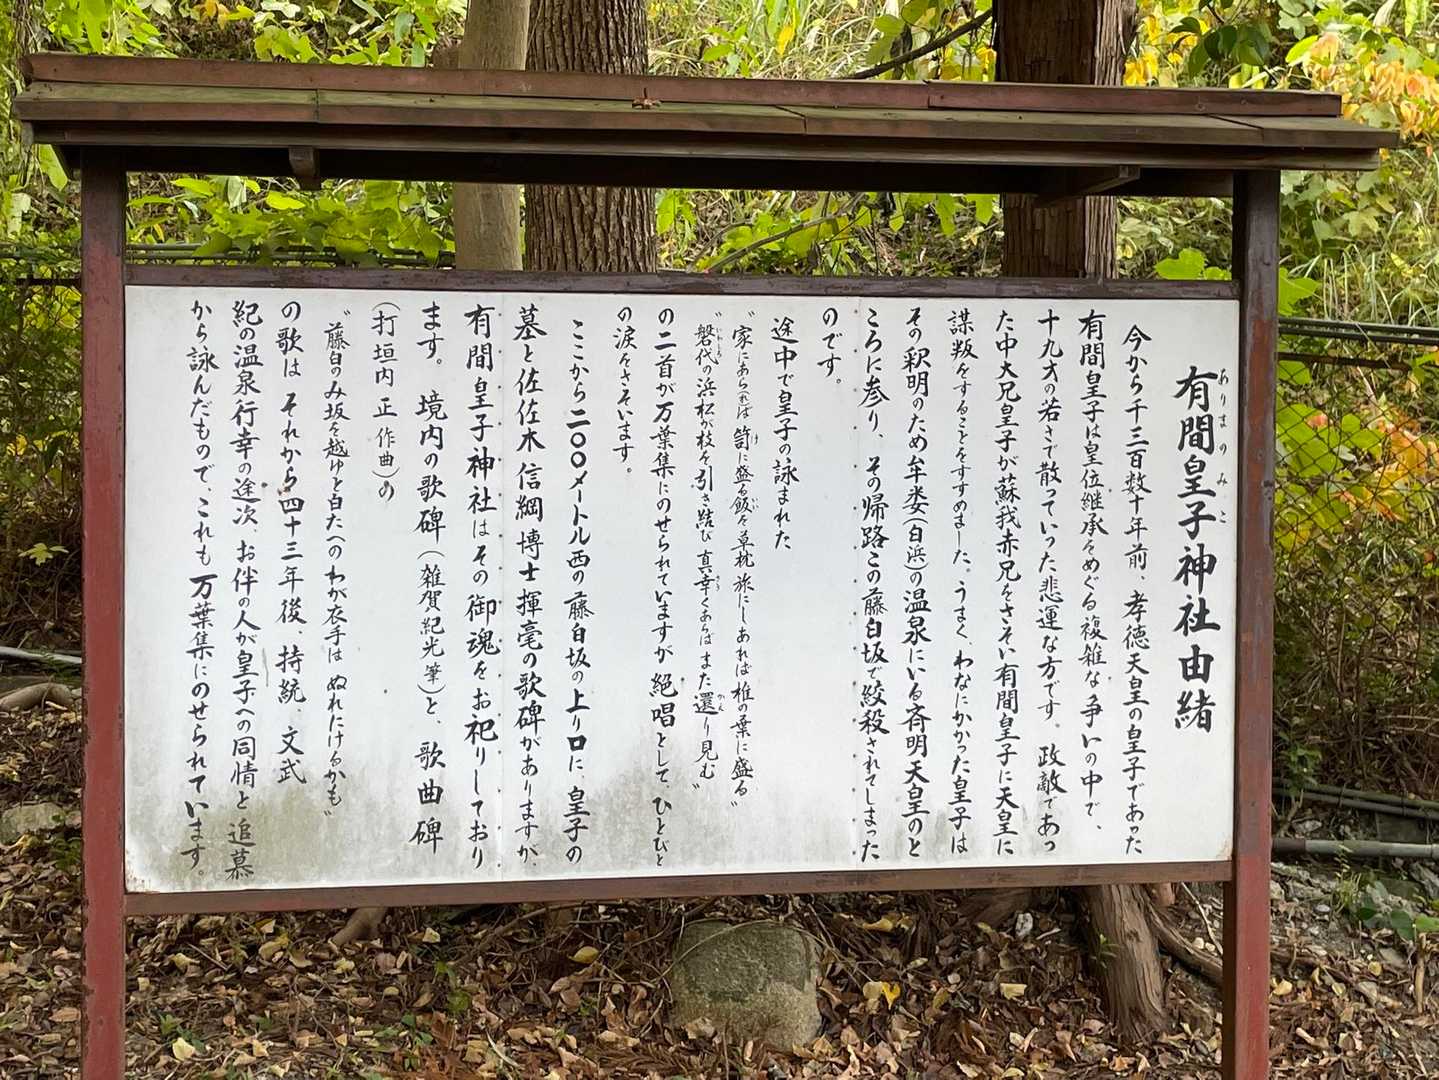 有間皇子神社由緒
ありまのみこ
今から千三百数十年前、孝徳天皇の皇子であった
有間皇子は皇位継承をめぐる複雑な争いの中で、
十九才の若さで散っていった悲運な方です。政敵であっ
た中大兄皇子が蘇我赤兄をさそい有間皇子に天皇に
謀叛をすることをすすめました。うまく、わなにかかった皇子は
その釈明のため牟婁(白浜)の温泉にいる斉明天皇のと
ころに参り、その帰路この藤白坂で絞殺されてしまった
のです。
途中で皇子の詠まれた
〝家にあれば笥に盛る飯を草枕旅にしあれば椎の葉に盛る〟
〝磐代の浜松が枝を引き結び真幸くあらばまた還り見む〟
の二首が万葉集にのせられていますが絶唱として、ひとびと
の涙をさそいます。
ここから二〇〇メートル西の藤白坂の上り口に、皇子の
墓と佐佐木信綱博士揮毫の歌碑がありますが、
有間皇子神社はその御魂をお祀りしており
ます。境内の歌碑(雑賀紀光筆)と、歌曲碑
(打垣内正作曲)の
〝藤白のみ坂を越ゆと白たへのわが衣手はぬれにけるかも〟
の歌は それから四十三年後、持統、文武
紀の温泉行幸の途次、お伴の人が皇子への同情と追慕
から詠んだもので、これも万葉集にのせられています。